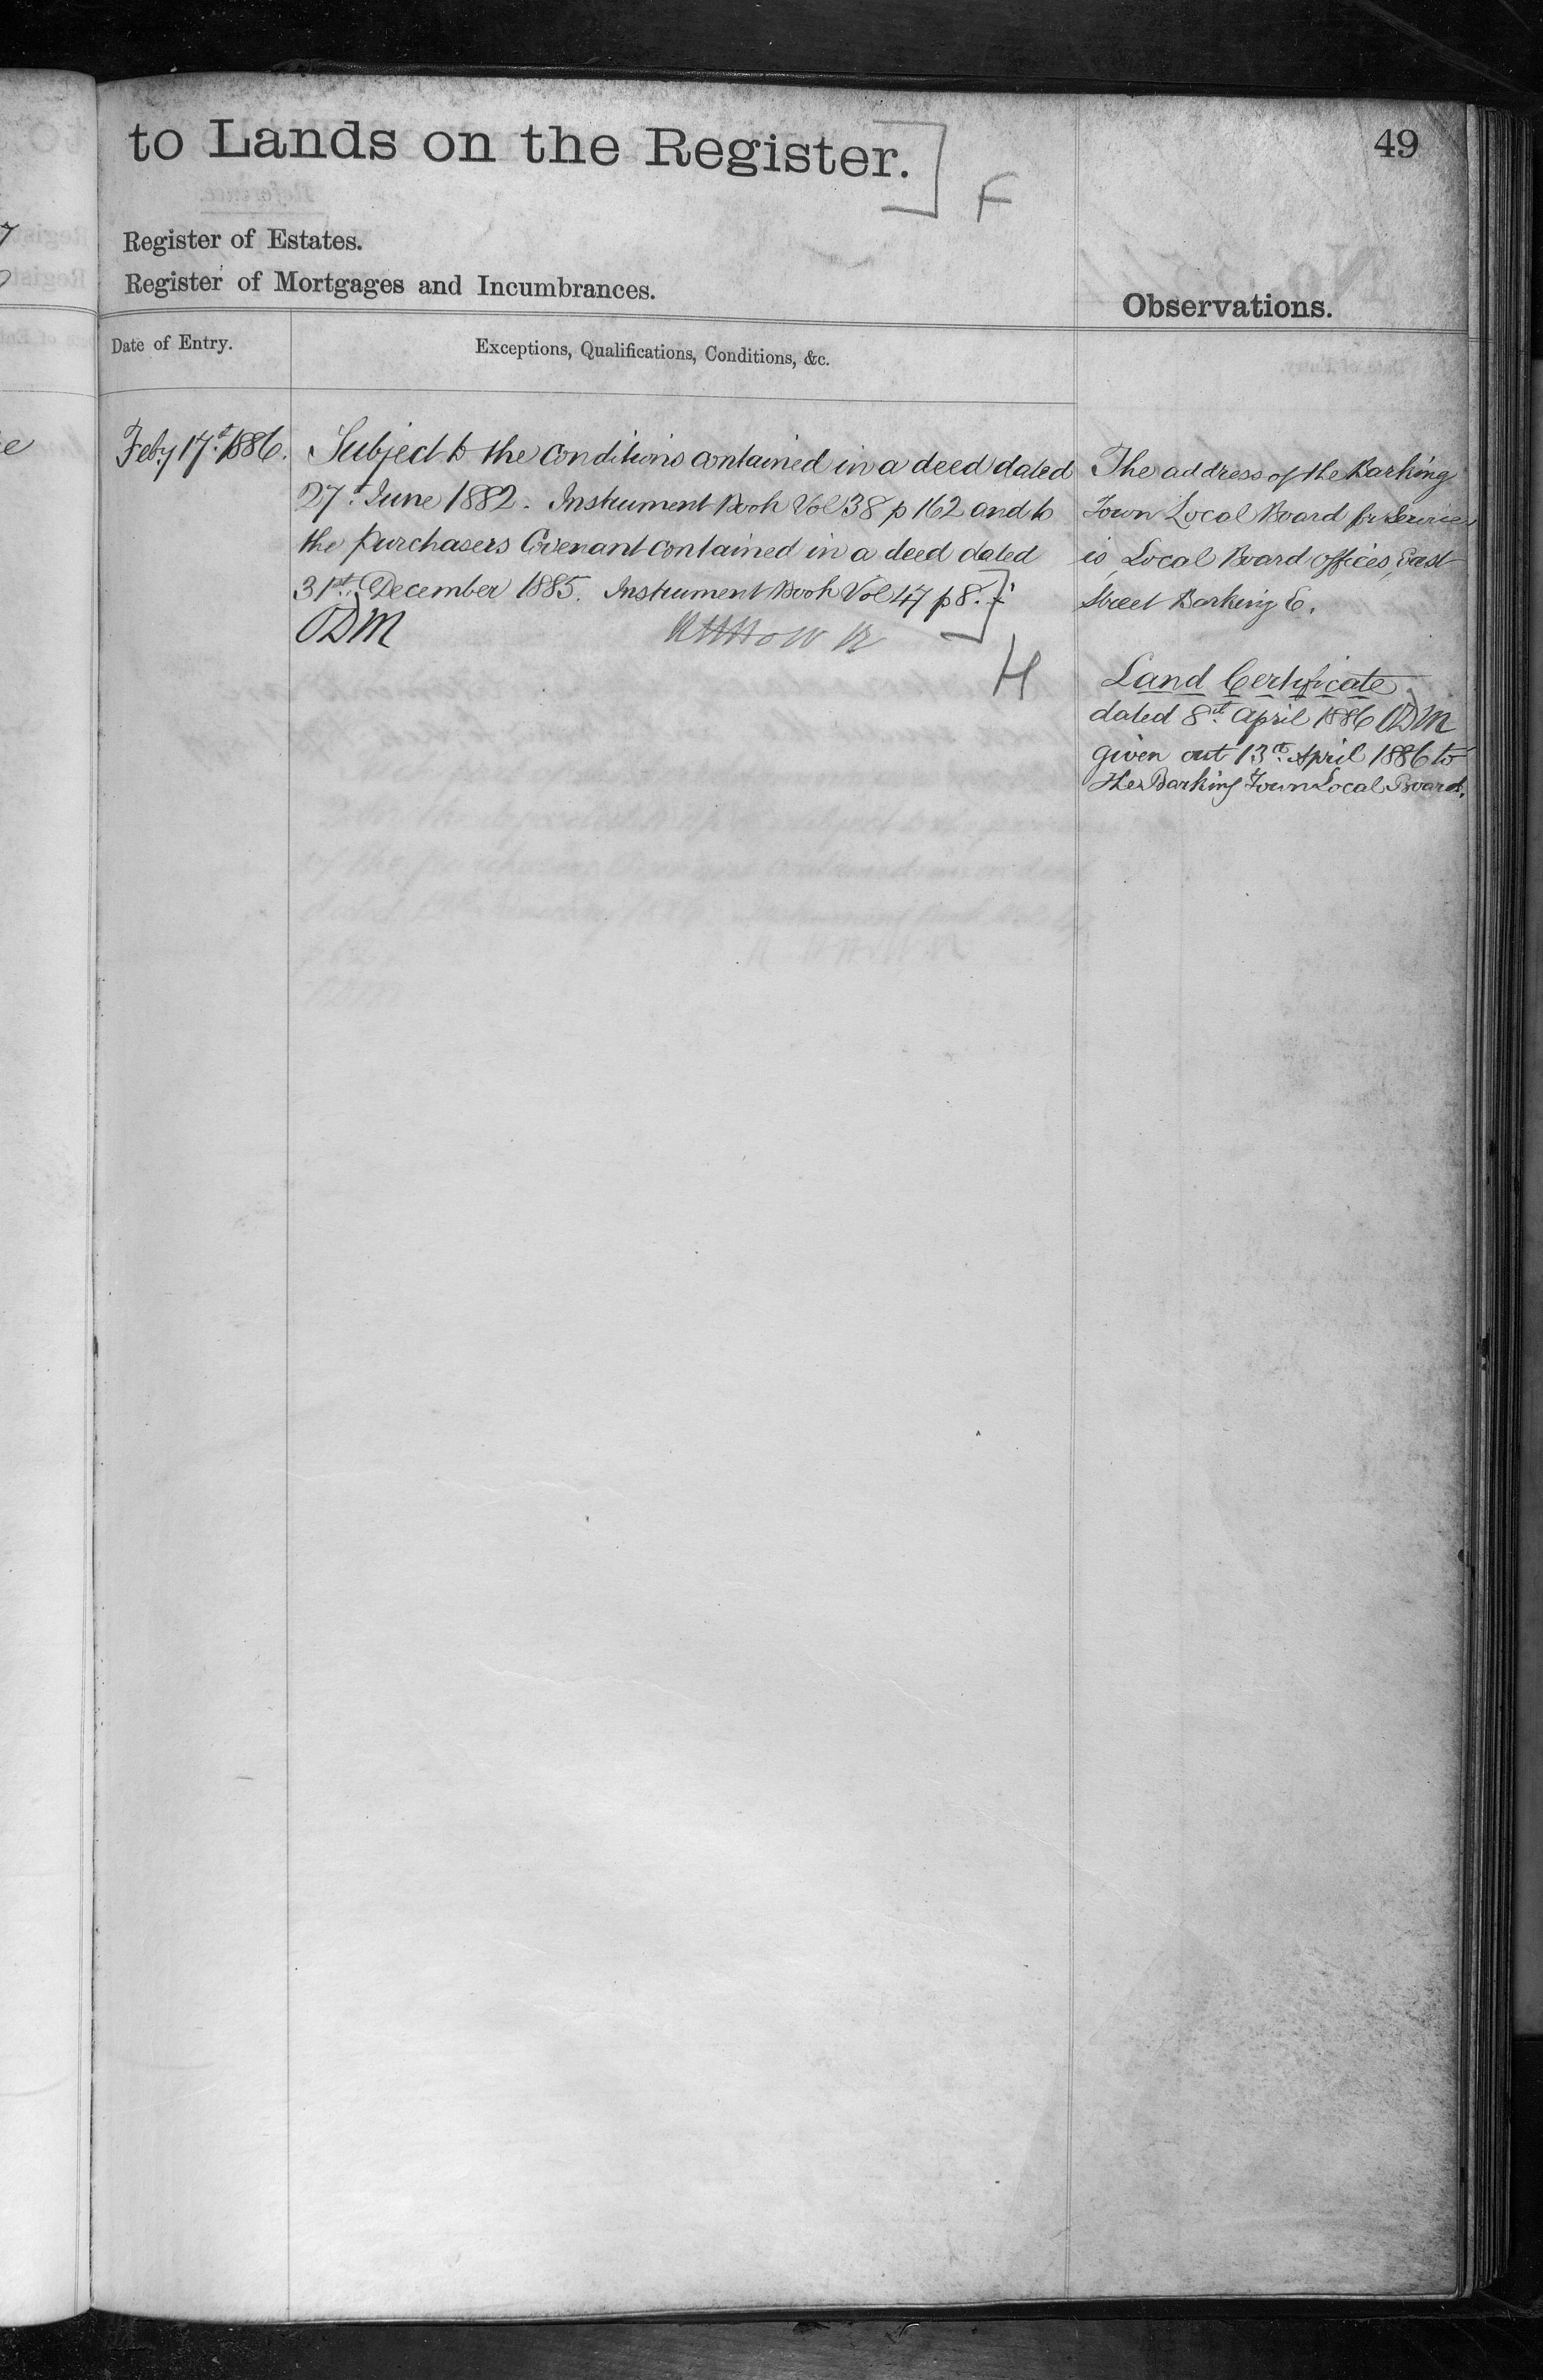 to Lands on the Register.
F
49
Register of Estates.
Register of Mortgages and Incumbrances.
Observations.
Date of Entry.
Exceptions, Qualifications, Conditions, &c.
Feby 17th 1886.
Subject to the conditions contained in a deed dated
27th June 1882. Instrument Book Vol 38 p 162 and to
the purchasers Covenant contained in a deed dated
31st December 1885. Instrument Book Vol 47 p 8.
ODM
H
The address of the Barking
Town Local Board for Service
is, Local Board offices, East
Street Barking E.
Land Certificate
dated 8th April 1886 ODM
given out 13th April 1886 to
the Barking Town Local Board.